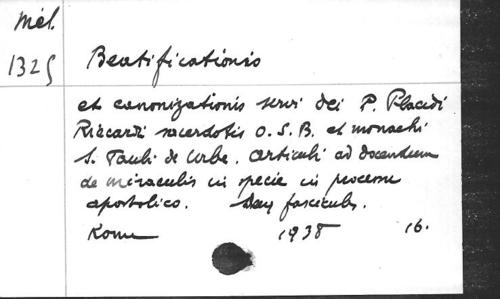 Mél.
1325
Beatificationis
et canonizationis servi Dei P. Placidi
Riccardi sacerdotis O.S.B. et monachi
S. Pauli de Urbe. Articuli ad docendum
de miraculis in specie in processu
apostolico. fascicul.
Roma 1938 16.